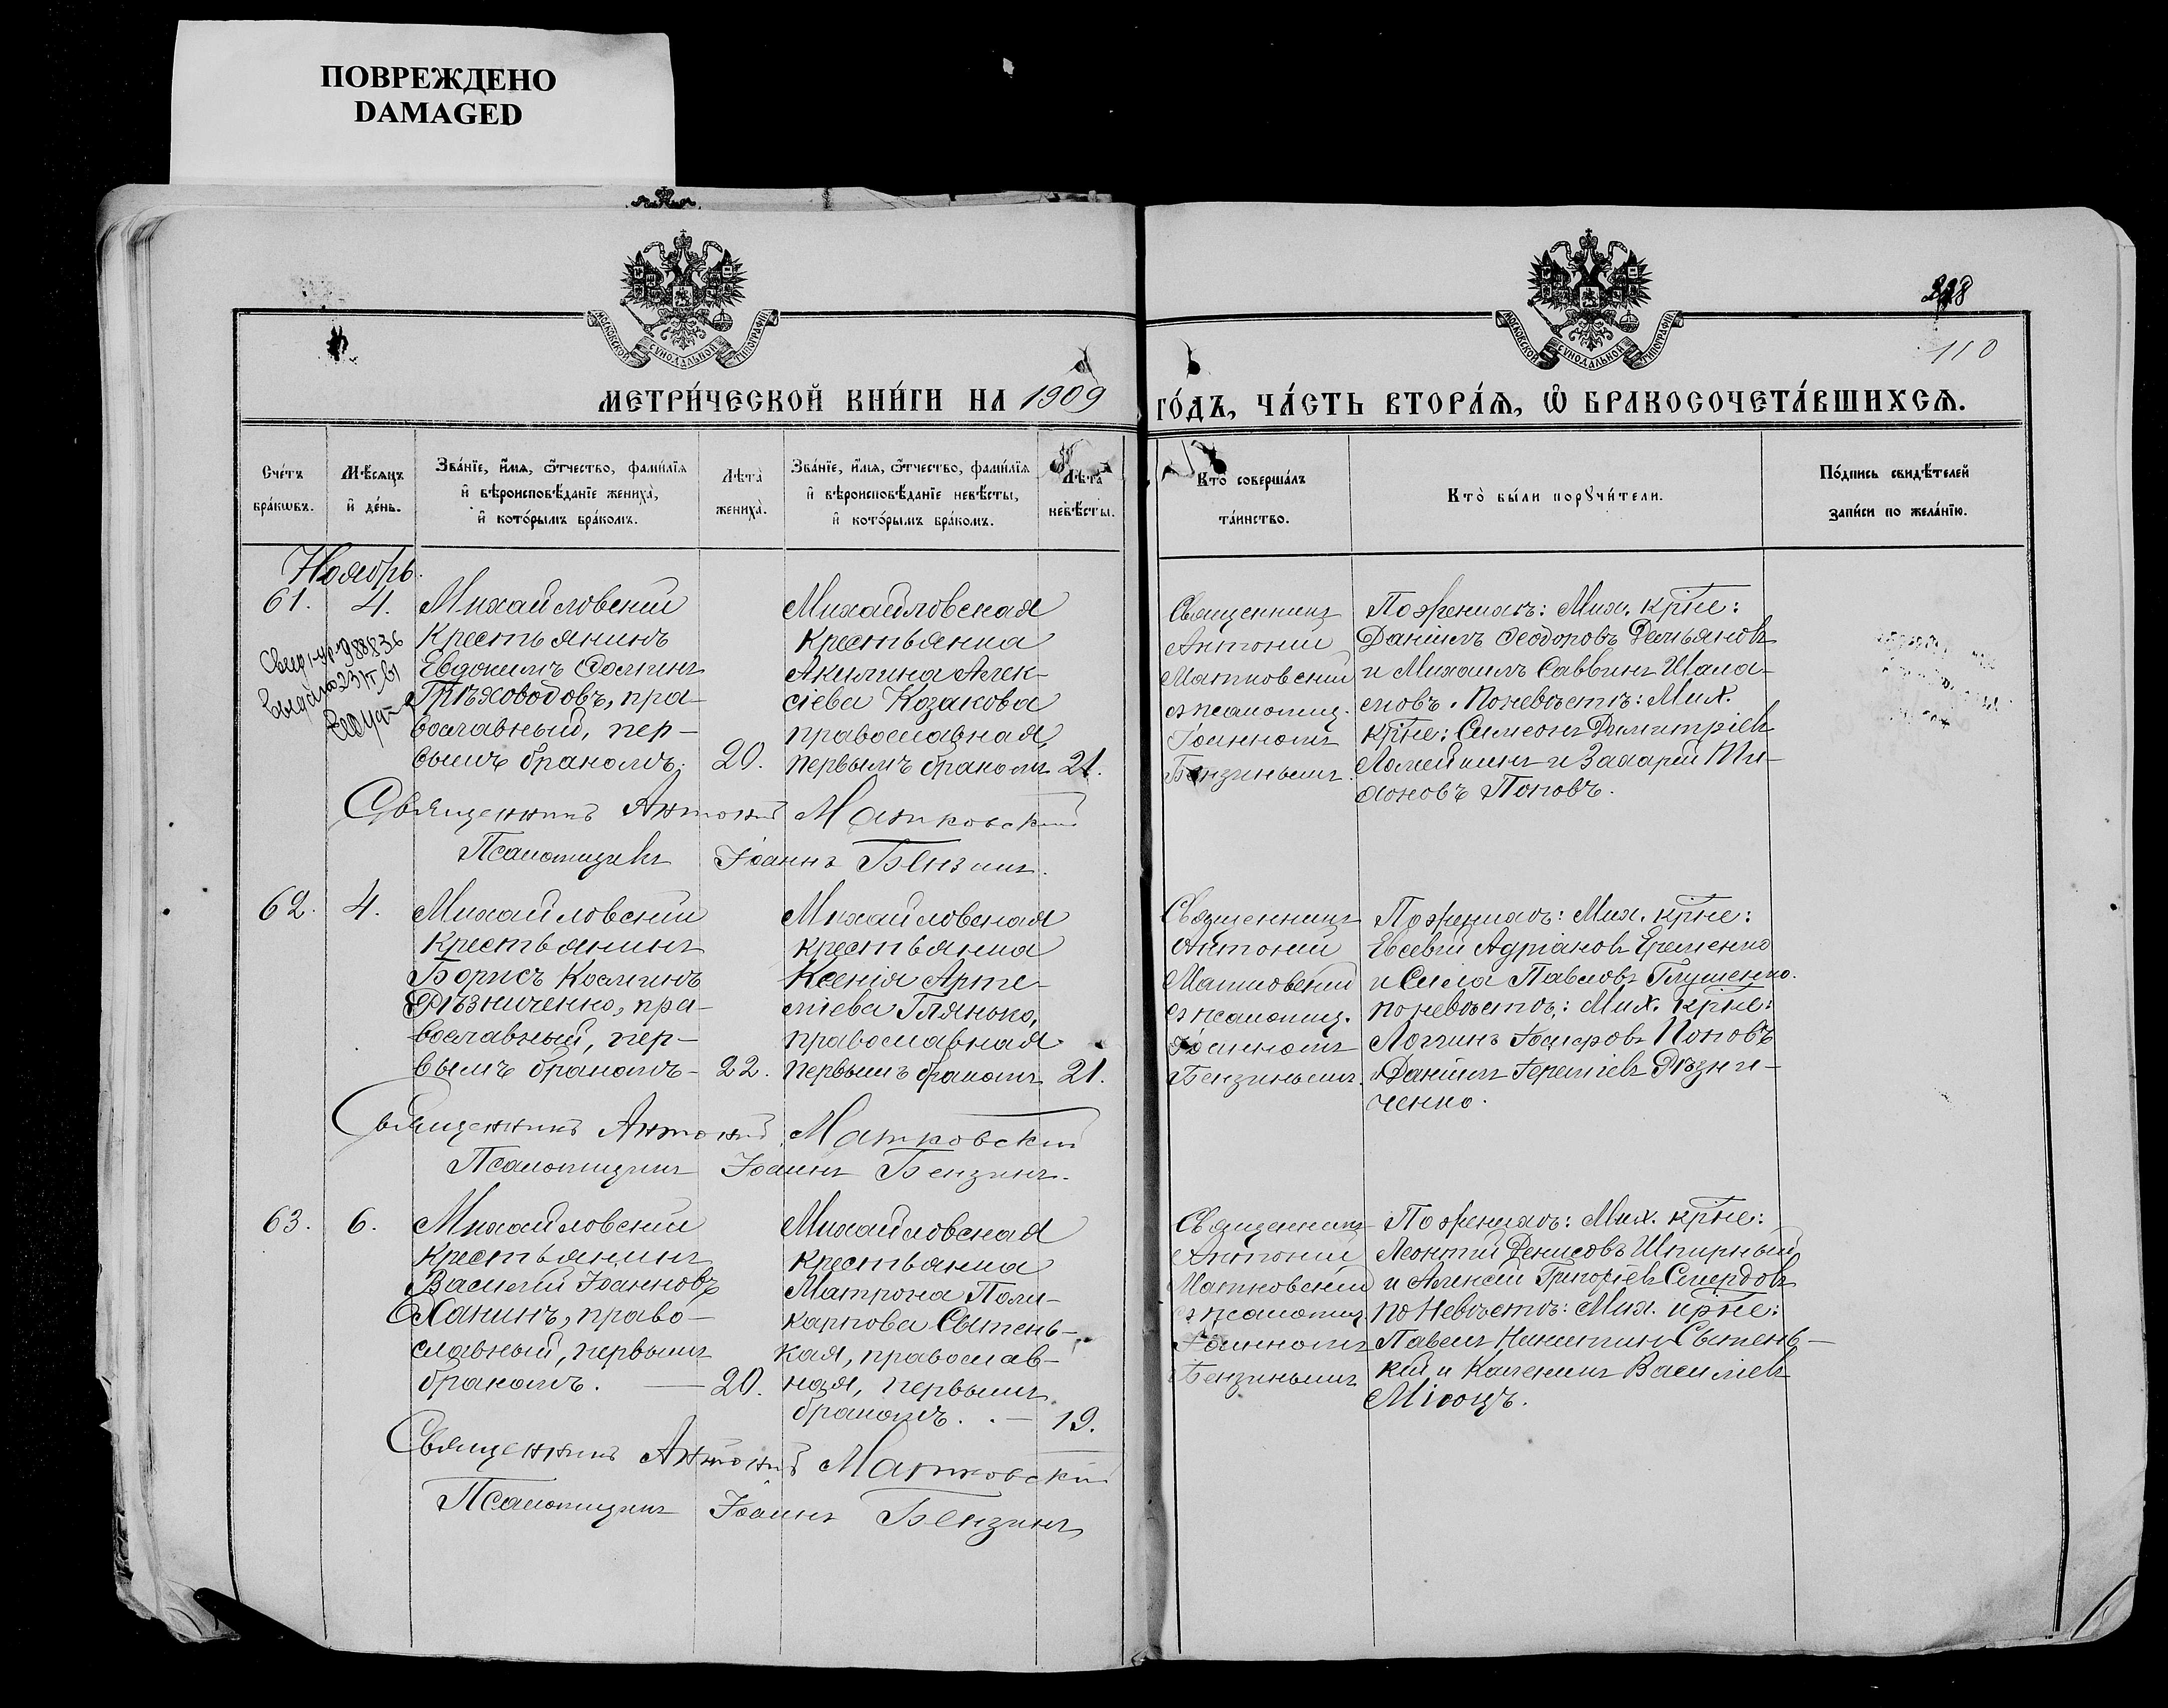 ПОВРЕЖДЕНО
DAMAGED
МОСКОВСКОЙ СѴНОДАЛЬНОЙ ТИПОГРАФІИ
МОСКОВСКОЙ СѴНОДАЛЬНОЙ ТИПОГРАФІИ
110
МЕТРИ́ЧЕСКОЙ КНИ́ГИ НА 1909 ГО́ДЪ, ЧА́СТЬ ВТОРА́Ѧ, Ѽ БРАКОСОЧЕТА́ВШИХСѦ.
Сче́тъ
бра́кѡвъ.
Мѣ́сяцъ
и҆ де́нь.
Зва́нїе, и҆́мя, ѻ҆́тчество, фами́лїя
и҆ вѣроисповѣ́данїе жениха̀,
и҆ кото́рымъ бра́комъ.
Лѣ́та
жениха̀.
Зва́нїе, и҆́мя, ѻ҆́тчество, фами́лїя
и҆ вѣроисповѣ́данїе невѣ́сты,
и҆ кото́рымъ бра́комъ.
Лѣ́та
невѣ́сты.
Кто̀ соверша́лъ
та́инство.
Кто̀ бы́ли порꙋчи́тели.
По́дпись свидѣ́телей
за́писи по жела́нїю.
Ноябрь.
61. 4.
Михайловскій
Крестьянинъ
Евдокимъ Фоминъ
Грѣховодовъ, пра-
вославный, пер-
вымъ бракомъ. 20.
Михайловская
Крестьянка
Акилина Алек-
сіева Козакова
православная,
первымъ бракомъ 21.
Священникъ
Антоній
Матковскій
съ псаломщ.
Іоанномъ
Бензинымъ.
По женихѣ: Мих. кр̃не:
Даніилъ Ѳеодоровъ Демьяновъ
и Михаилъ Саввинъ Шала-
мовъ. По невѣстѣ: Мих.
кр̃не: Симеонъ Димитріевъ
Ломейкинъ и Захарій Ти-
хоновъ Поповъ.
Священникъ Антоній Матковскій
Псаломщикъ Іоаннъ Бензинъ.
62. 4.
Михайловскій
крестьянинъ
Борисъ Косминъ
Рѣзниченко, пра-
вославный, пер-
вымъ бракомъ - 22.
Михайловская
крестьянка
Ксенія Арте-
міева Глянько,
православная
первымъ бракомъ 21.
Священникъ
Антоній
Матковскій
съ псаломщ.
Іоанномъ
Бензинымъ.
По женихѣ: Мих. кр̃не:
Евсевій Адріановъ Еременко
и Сила Павловъ Глущенко.
по невѣстѣ: Мих. кр̃не:
Логгинъ Поповъ
Даніилъ Рѣзни-
ченко.
Священникъ Антоній Матковскій
Псаломщикъ Іоаннъ Бензинъ.
63. 6.
Михайловскій
крестьянинъ
Василій Іоанновъ
Ханинъ, право-
славный, первымъ
бракомъ. — 20.
Михайловская
крестьянка
Матрона Поли-
карпова Сытень-
кая, православ-
ная, первымъ
бракомъ. — 19.
Священникъ
Антоній
Матковскій
съ псаломщ.
Іоанномъ
Бензинымъ
По женихѣ: Мих. кр̃не:
Леонтій Денисовъ Шпирный
и Алексій Григоріевъ Смердовъ
по невѣстѣ: Мих. кр̃не:
Павелъ Никитинъ Сытень-
кій и Василіевъ
Священникъ Антоній Матковскій
Псаломщикъ Іоаннъ Бензинъ